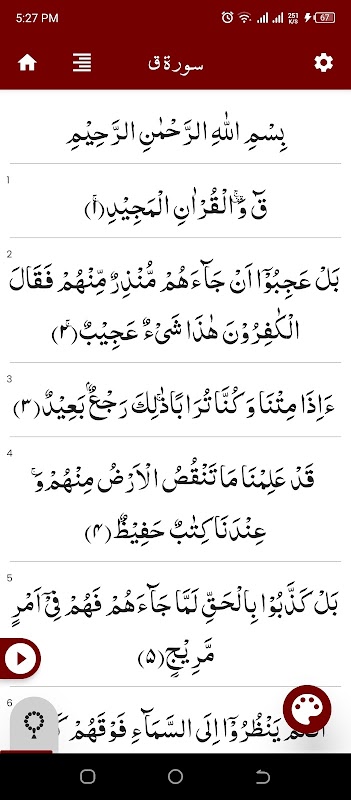 5:27 PM 251 K/S 67
سورة ق
بِسْمِ اللّٰهِ الرَّحْمٰنِ الرَّحِيْمِ
1
قٓ ۚ وَالْقُرْاٰنِ الْمَجِيْدِ(۱)
2
بَلْ عَجِبُوْۤا اَنْ جَآءَهُمْ مُّنْذِرٌ مِّنْهُمْ فَقَالَ
الْكٰفِرُوْنَ هٰذَا شَیْءٌ عَجِيْبٌ(۲)
3
ءَاِذَا مِتْنَا وَ كُنَّا تُرَابًا ذٰلِكَ رَجْعٌۢ بَعِيْدٌ(۳)
4
قَدْ عَلِمْنَا مَا تَنْقُصُ الْاَرْضُ مِنْهُمْ وَ
عِنْدَنَا كِتٰبٌ حَفِيْظٌ(۴)
5
بَلْ كَذَّبُوْا بِالْحَقِّ لَمَّا جَآءَهُمْ فَهُمْ فِیْۤ اَمْرٍ
مَّرِيْجٍ(۵)
6
يَنْظُرُوْۤا اِلَی السَّمَآءِ فَوْقَهُمْ